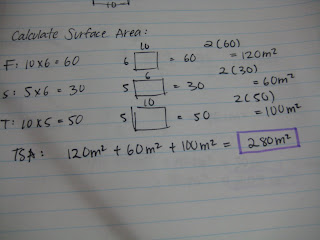 10
Calculate Surface Area:
F: 10x6 = 60
10
6
= 60
2(60)
= 120m²
S: 5x6 = 30
6
5
= 30
2(30)
= 60m²
T: 10x5 = 50
10
5
= 50
2(50)
= 100m²
TSA: 120m² + 60m² + 100m² = 280m²